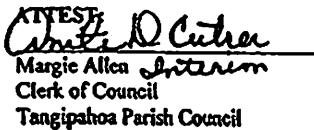 ATTEST:
D Cutrer
Margie Allen Interim
Clerk of Council
Tangipahoa Parish Council